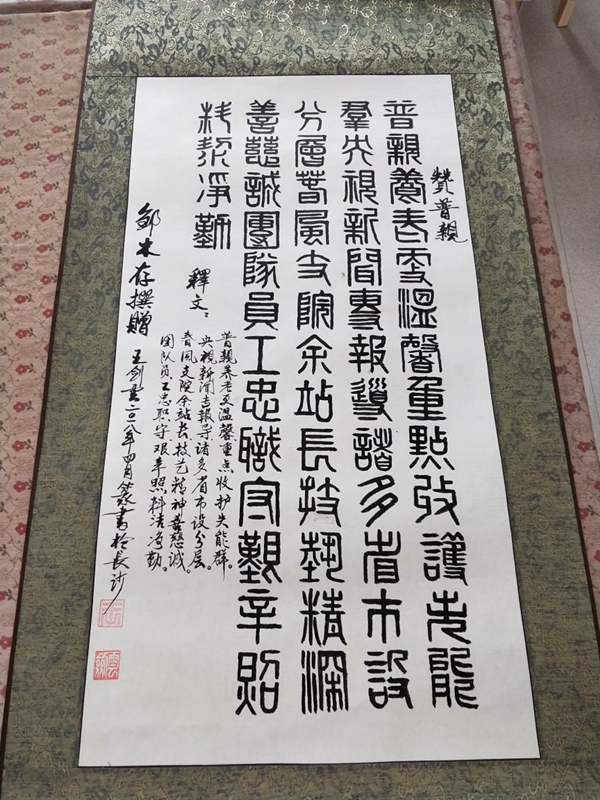 贊普親
普親養老更溫馨重點收護失能
羣央視新聞專報導諸多省市設
分層春風支院余站長技藝精深
善慈誠團隊員工忠職守艱辛照
料潔淨勤
釋文：
普親养老更温馨重点收护失能群。
央视新闻专报导诸多省市设分层。
春風支院余站长技艺精神善慈诚。
团队员工忠职守艰辛照料洁净勤。
邹木存撰贈
王剑書二〇一八年四月篆書於長沙